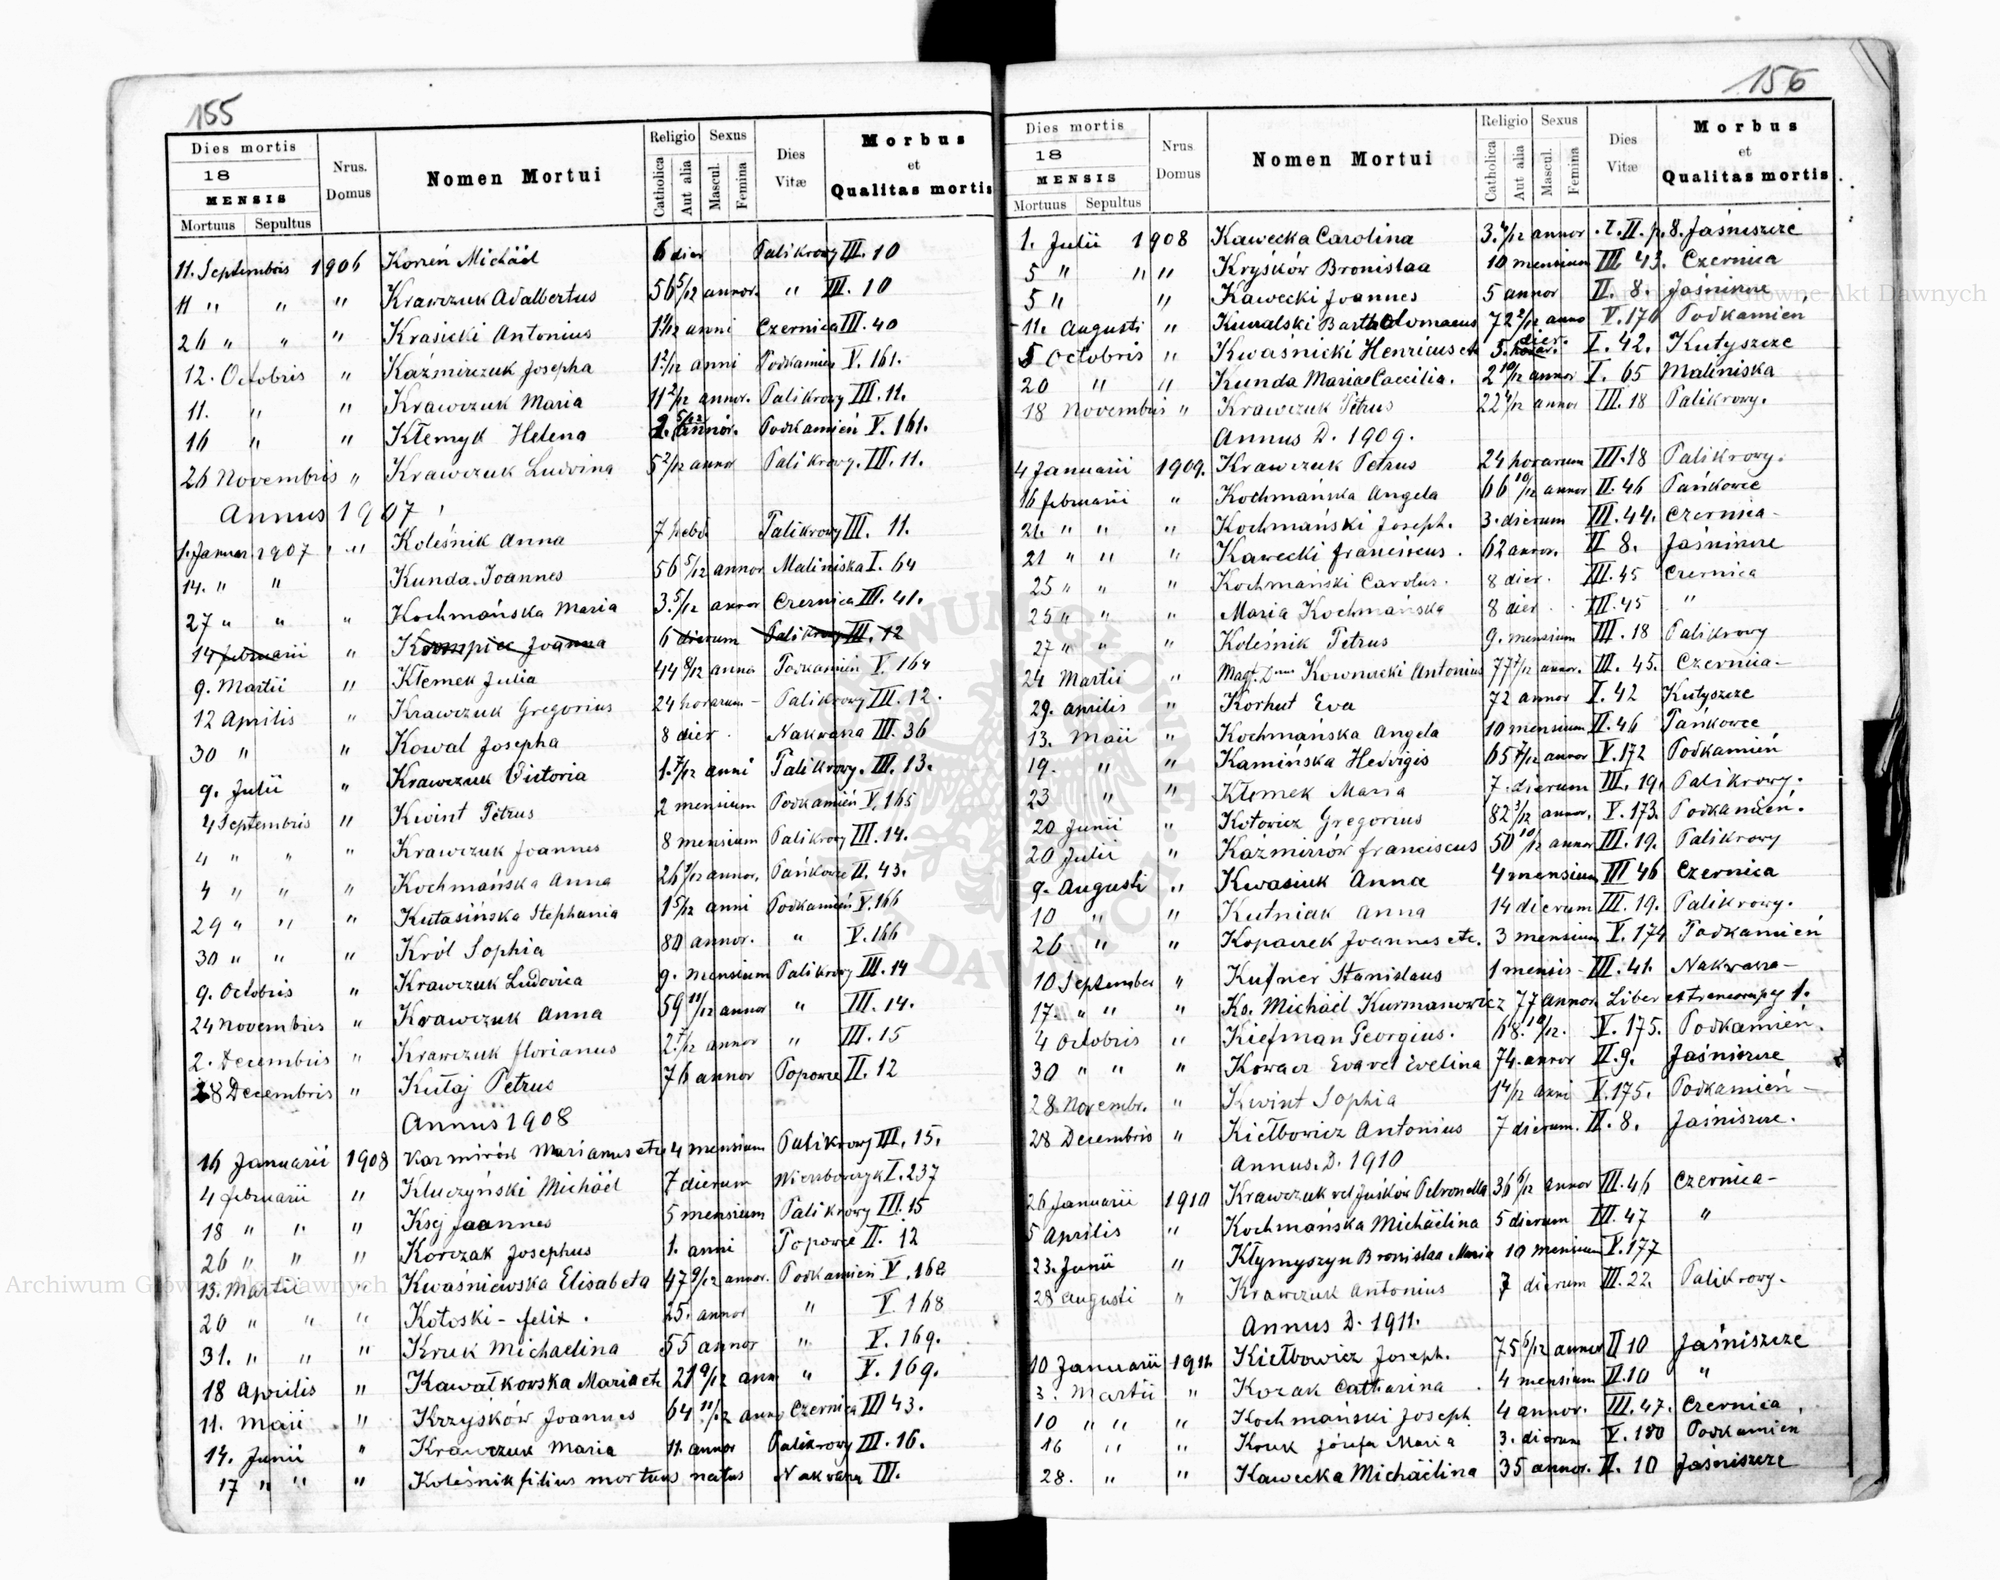 155
Dies mortis
18
MENSIS
Mortuus Sepultus
Nrus. Domus
Nomen Mortui
Religio
Catholica
Aut alia
Sexus
Mascul.
Femina
Dies Vitæ
Morbus et Qualitas mortis
11. Septembris 1906 Koreń Michäël 6 dier Palikrowy III. 10
11 " " " Krawczuk Adalbertus 56 5/12 annor. " III. 10
26 " " " Krasicki Antonius anni Czernica III. 40
12. Octobris " Kaźmirczuk Josepha 1 2/12 anni Podkamień V. 161.
11. " " Krawczuk Maria 11 2/12 annor. Palikrowy III. 11.
16 " " Kłemyk Helena annor. Podkamień V. 161.
26 Novembris " Krawczuk Ludvina 5 2/12 annor Palikrowy. III. 11.
Annus 1907
1. Januar. 1907 " Koleśnik Anna 7 hebd. Palikrowy III. 11.
14. " " Kunda Joannes 56 5/12 annor Maliniska I. 64
27 " " " Kochmańska Maria 3. 5/12 annor Czernica III. 41.
14 februarii " Joanna 6 dierum Palikrowy III. 12
9. Martii " Kłemek Julia 44 8/12 anna Podkamień V. 164
12 Aprilis " Krawczuk Gregorius 24 horarum - Palikrowy III. 12.
30 " " Kowal Josepha 8 dier. Nakwasa III. 36
9. Julii " Krawczuk Victoria 1. 7/12 anni Palikrowy. III. 13.
4 Septembris " Kwint Petrus 2 mensium Podkamień V. 165
4 " " " Krawczuk Joannes 8 mensium Palikrowy III. 14.
4 " " " Kochmańska Anna annor. Pańkowce II. 43.
29 " " " Kutasińska Stephania 1 5/12 anni Podkamień V. 166
30 " " " Król Sophia 80 annor. " V. 166
9. Octobris " Krawczuk Ludovica 9. mensium Palikrowy III. 14
24 Novembris " Krawczuk Anna 59 11/12 annor " III. 14.
2. Decembris " Krawczuk florianus 2. 7/12 annor " III. 15
28 Decembris " Kułaj Petrus 76 annor Popowce II. 12
Annus 1908
16 Januarii 1908 Kazmirów Marianus etc 4 mensium Palikrowy III. 15.
4 februarii " Kluczyński Michäël 7 dierum Wierzbowczyk I. 237
18 " " " Ksej Joannes 5 mensium Palikrowy III. 15
26 " " " Korczak Josephus 1. anni Popowce II. 12
13. Martii " Kwaśniewska Elisabeta 47 9/12 annor. Podkamień V. 168
20 " " " Kołoski - felix. 25. annor " V. 168
31. " " " Kruk Michaelina 55 annor " V. 169.
18 Aprilis " Kawałkowska Maria etc 21 9/12 ann " V. 169.
11. Maii " Krzysków Joannes 64 11/12 anno Czernica III 43.
14. Junii " Krawczuk Maria 11. annor Palikrowy III. 16.
17 " " " Koleśnik filius mortuus natus Nakwasa III.
156
Dies mortis
18
MENSIS
Mortuus Sepultus
Nrus. Domus
Nomen Mortui
Religio
Catholica
Aut alia
Sexus
Mascul.
Femina
Dies Vitæ
Morbus et Qualitas mortis
1. Julii 1908 Kawecka Carolina annor. T. II. p. 8. Jaśniszcze
5 " " " Kryśków Bronislaa 10 mensium III. 43. Czernica
5 " " Kawecki Joannes 5 annor II. 8. Jaśniszcze
11. Augusti " Kuwalski Bartholomaeus 72 2/12 anno V. 170 Podkamień
5 Octobris " Kwaśnicki Henricus etc 5. dier. I. 42. Kutyszcze
20 " " Kunda Maria Caecilia. 2 10/12 annor I. 65 Maliniska
18 Novembris " Krawczuk Petrus annor III. 18 Palikrowy.
Annus D. 1909.
4 Januarii 1909. Krawczuk Petrus 24 horarum III. 18 Palikrowy.
16 februarii " Kochmańska Angela 66 10/12 annor II. 46 Pańkowce
21. " " " Kochmański Joseph. 3. dierum III. 44. Czernica -
21 " " " Kawecki franciscus. 62 annor. II 8. Jaśniszcze
25 " " " Kochmański Carolus. 8 dier. III. 45 Czernica
25 " " " Maria Kochmańska 8 dier III. 45 "
27 " " " Koleśnik Petrus 9. mensium III. 18 Palikrowy
24 Martii " Kownacki Antonius annor. III. 45. Czernica -
29. aprilis " Korhut Eva 72 annor I. 42 Kutyszcze
13. Maii " Kochmańska Angela 10 mensium II. 46 Pańkowce
19. " " Kamińska Hedvigis 65 7/12 annor V. 172 Podkamień
23 " " Kłemek Maria 7. dierum III. 19. Palikrowy.
20 Junii " Kotowicz Gregorius 82 3/12 annor. V. 173. Podkamień.
20 Julii " Kaźmirów franciscus 50 10/12 annor III. 19. Palikrowy
9. Augusti " Kwasiuk Anna 4 mensium III 46 Czernica
10 " " Kutniak Anna 14 dierum III. 19. Palikrowy.
26 " " Kopaczek Joannes etc. 3 mensium V. 174 Podkamień
10 September " Kufner Stanislaus 1 mensis - III. 41. Nakwasa -
17 " " " Ks. Michäel Kurmanowicz 77 annor. Liber 1.
4 Octobris " Kiefman Georgius. 68. 10/12. V. 175. Podkamień.
30 " " " Kowacz Eva vel Evelina 74. annor II. 9. Jaśniszcze
28 Novembr. " Kwint Sophia 1 4/12 anni V. 175. Podkamień -
28 Decembris " Kiełbowicz Antonius 7 dierum. II. 8. Jaśniszcze.
Annus. D. 1910
26 Januarii 1910 Krawczuk vel Juśków Petronella 36 6/12 annor III. 46 Czernica -
5 Aprilis " Kochmańska Michäelina 5 dierum III. 47 "
23. Junii " Kłymyszyn Bronislaa Maria 10 mensium V. 177
28 augusti " Krawczuk Antonius 7 dierum III. 22. Palikrowy.
Annus D. 1911.
10 Januarii 1911. Kiełbowicz Joseph. 75 6/12 annor II 10 Jaśniszcze
3. Martii " Kozak Catharina. 4 mensium II. 10 "
10 " " " Kochmański Joseph 4 annor. III. 47. Czernica
16 " " Kruk Józefa Maria 3. dierum V. 180 Podkamień
28. " " Kawecka Michäelina 35 annor. II. 10 Jaśniszcze
Archiwum Główne Akt Dawnych
Archiwum Główne Akt Dawnych
ARCHIWUM GŁÓWNE AKT DAWNYCH